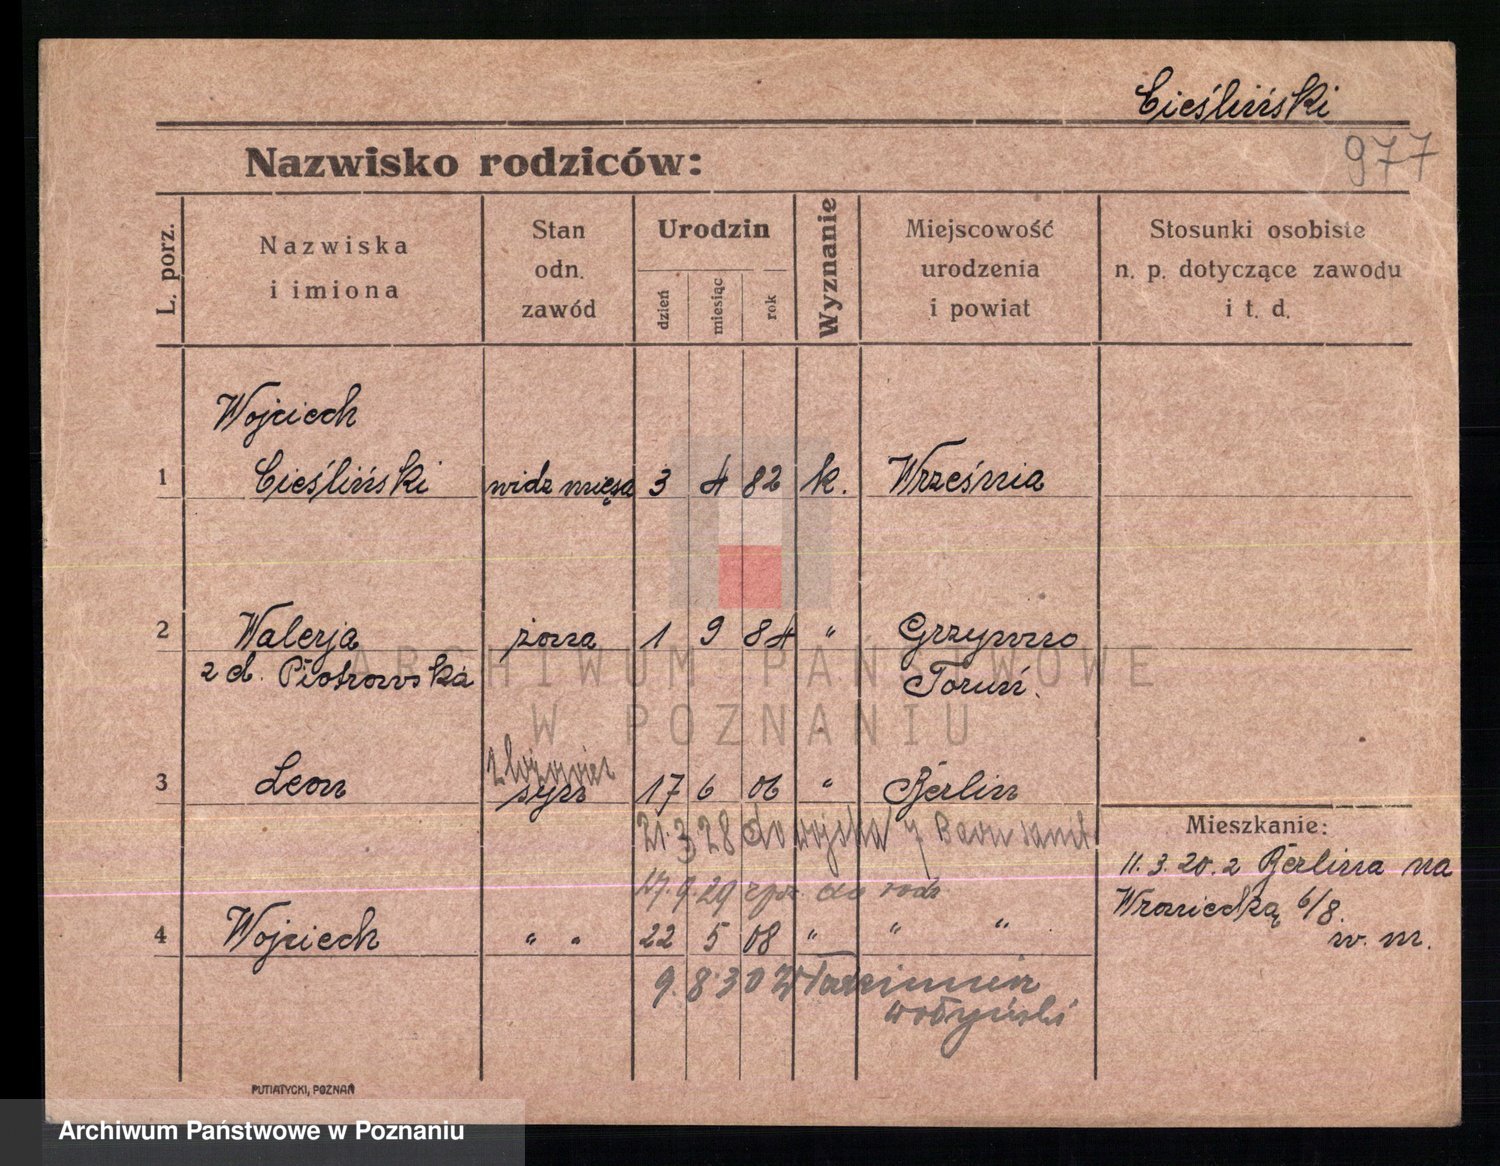 Cieśliński
977
Nazwisko rodziców:
L. porz.
Nazwiska
i imiona
Stan
odn.
zawód
Urodzin
dzień
miesiąc
rok
Wyznanie
Miejscowość
urodzenia
i powiat
Stosunki osobiste
n. p. dotyczące zawodu
i t. d.
Wojciech
1 Cieśliński widz mięsa 3 4 82 k. Września
2 Walerja żona 1 9 84 " Grzywno
z d. Piotrowska Toruń.
3 Leon syn 17 6 06 " Berlin
21.3 28 do wojska 7 Baon sanit
Mieszkanie:
11.3.20. z Berlina na
17.9.29 do rodz
Wroniecką 6/8.
4 Wojciech " " 22 5 08 " " "
w. m.
9.8.30 Włodzimierz
wołyński
PUTIATYCKI, POZNAŃ
ARCHIWUM PAŃSTWOWE
W POZNANIU
Archiwum Państwowe w Poznaniu